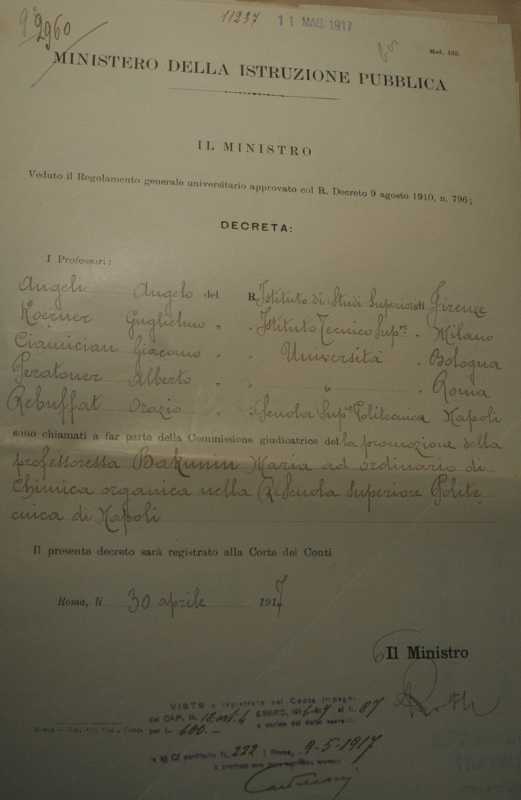 2960
11237 11 MAG 1917
Mod. 162
MINISTERO DELLA ISTRUZIONE PUBBLICA
IL MINISTRO
Veduto il Regolamento generale universitario approvato col R. Decreto 9 agosto 1910, n. 796;
DECRETA:
I Professori:
Angeli Angelo del R. Istituto di Studi Superiori di Firenze
Koerner Guglielmo " " Istituto Tecnico Supre " Milano
Ciamician Giacomo " " Università " Bologna
Peratoner Alberto " " " " Roma
Rebuffat Orazio " " Scuola Supre Politecnica Napoli
sono chiamati a far parte della Commissione giudicatrice della promozione della
professoressa Bakunin Maria ad ordinario di
Chimica organica nella R. Scuola Superiore Polite
cnica di Napoli
Il presente decreto sarà registrato alla Corte dei Conti
Roma, lì 30 aprile 1917
Il Ministro
VISTO e registrato nel Conto Impegni
del CAP. N. ESERC. 87
per L. 600.-
N. 222 Roma, 9-5-1917